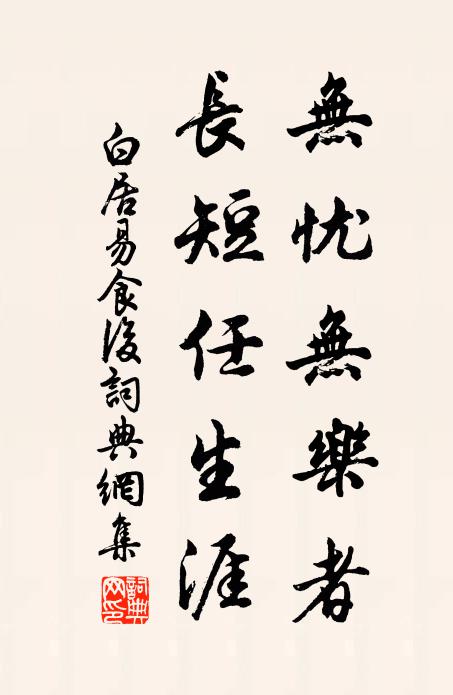 無忧無樂者
長短任生涯
白居易食後詞典網集
詞典网印